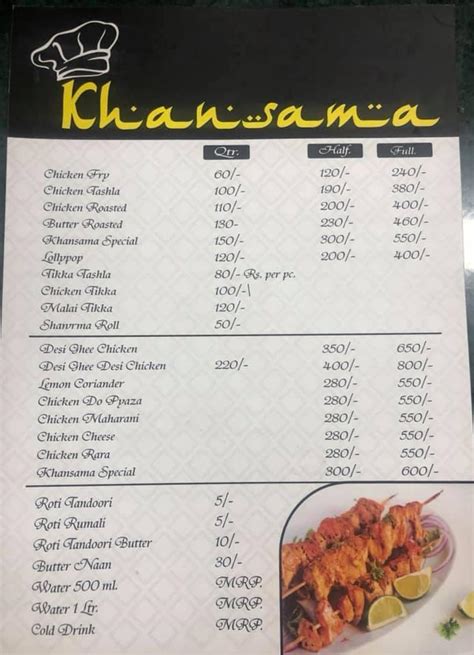 Khansama
Qtr. Half. Full.
Chicken Fry 60/- 120/- 240/-
Chicken Tashla 100/- 190/- 380/-
Chicken Roasted 110/- 200/- 400/-
Butter Roasted 130- 230/- 460/-
Khansama Special 150/- 300/- 550/-
Lollypop 120/- 200/- 400/-
Tikka Tashla 80/- Rs. per pc.
Chicken Tikka 100/-\
Malai Tikka 120/-
Shavrma Roll 50/-
Desi Ghee Chicken 350/- 650/-
Desi Ghee Desi Chicken 220/- 400/- 800/-
Lemon Coriander 280/- 550/-
Chicken Do Pyaza 280/- 550/-
Chicken Maharani 280/- 550/-
Chicken Cheese 280/- 550/-
Chicken Rara 280/- 550/-
Khansama Special 300/- 600/-
Roti Tandoori 5/-
Roti Rumali 5/-
Roti Tandoori Butter 10/-
Butter Naan 30/-
Water 500 ml. MRP.
Water 1 Ltr. MRP.
Cold Drink MRP.